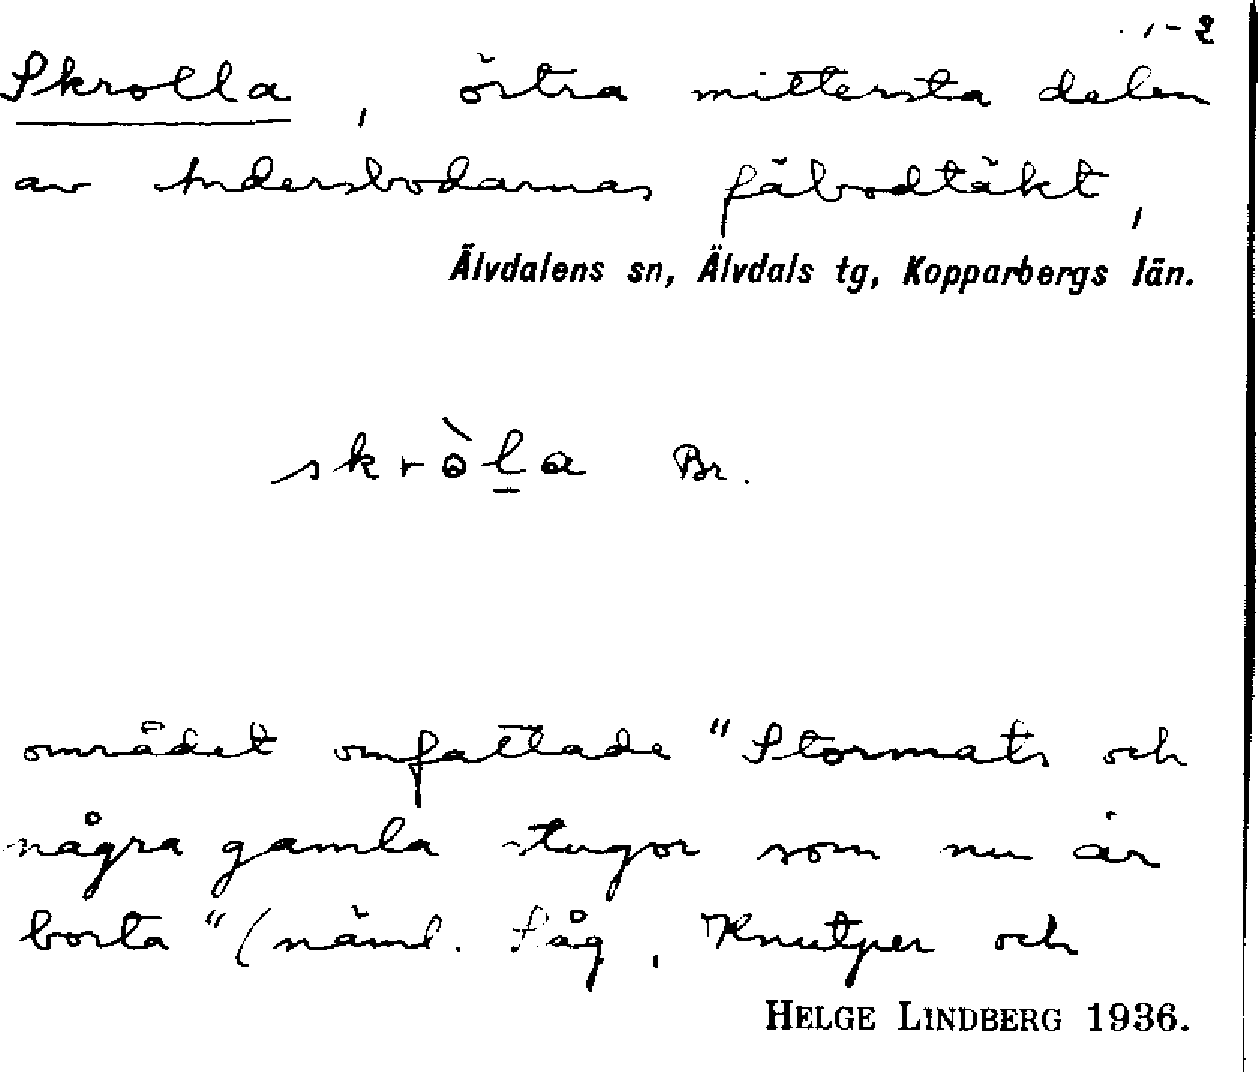 1-2
Skrolla, östra mittersta delen
av Andersbodarnas fäbodtäkt,
Älvdalens sn, Älvdals tg, Kopparbergs län.
skròl̲a Br.
området omfattade "Stormats och
några gamla stugor som nu är
borta" (näml. Såg, Knutper och
HELGE LINDBERG 1936.